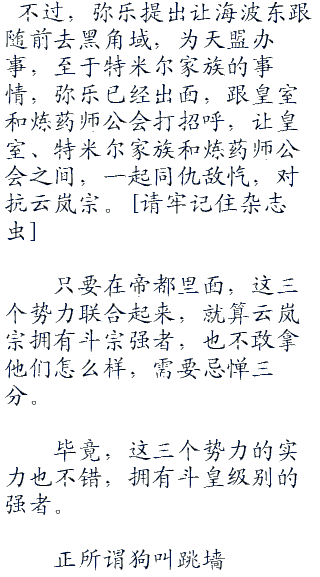 不过，弥乐提出让海波东跟
随前去黑角域，为天盟办
事，至于特米尔家族的事
情，弥乐已经出面，跟皇室
和炼药师公会打招呼，让皇
室、特米尔家族和炼药师公
会之间，一起同仇敌忾，对
抗云岚宗。[请牢记住杂志
虫]
只要在帝都里面，这三
个势力联合起来，就算云岚
宗拥有斗宗强者，也不敢拿
他们怎么样，需要忌惮三
分。
毕竟，这三个势力的实
力也不错，拥有斗皇级别的
强者。
正所谓狗叫跳墙